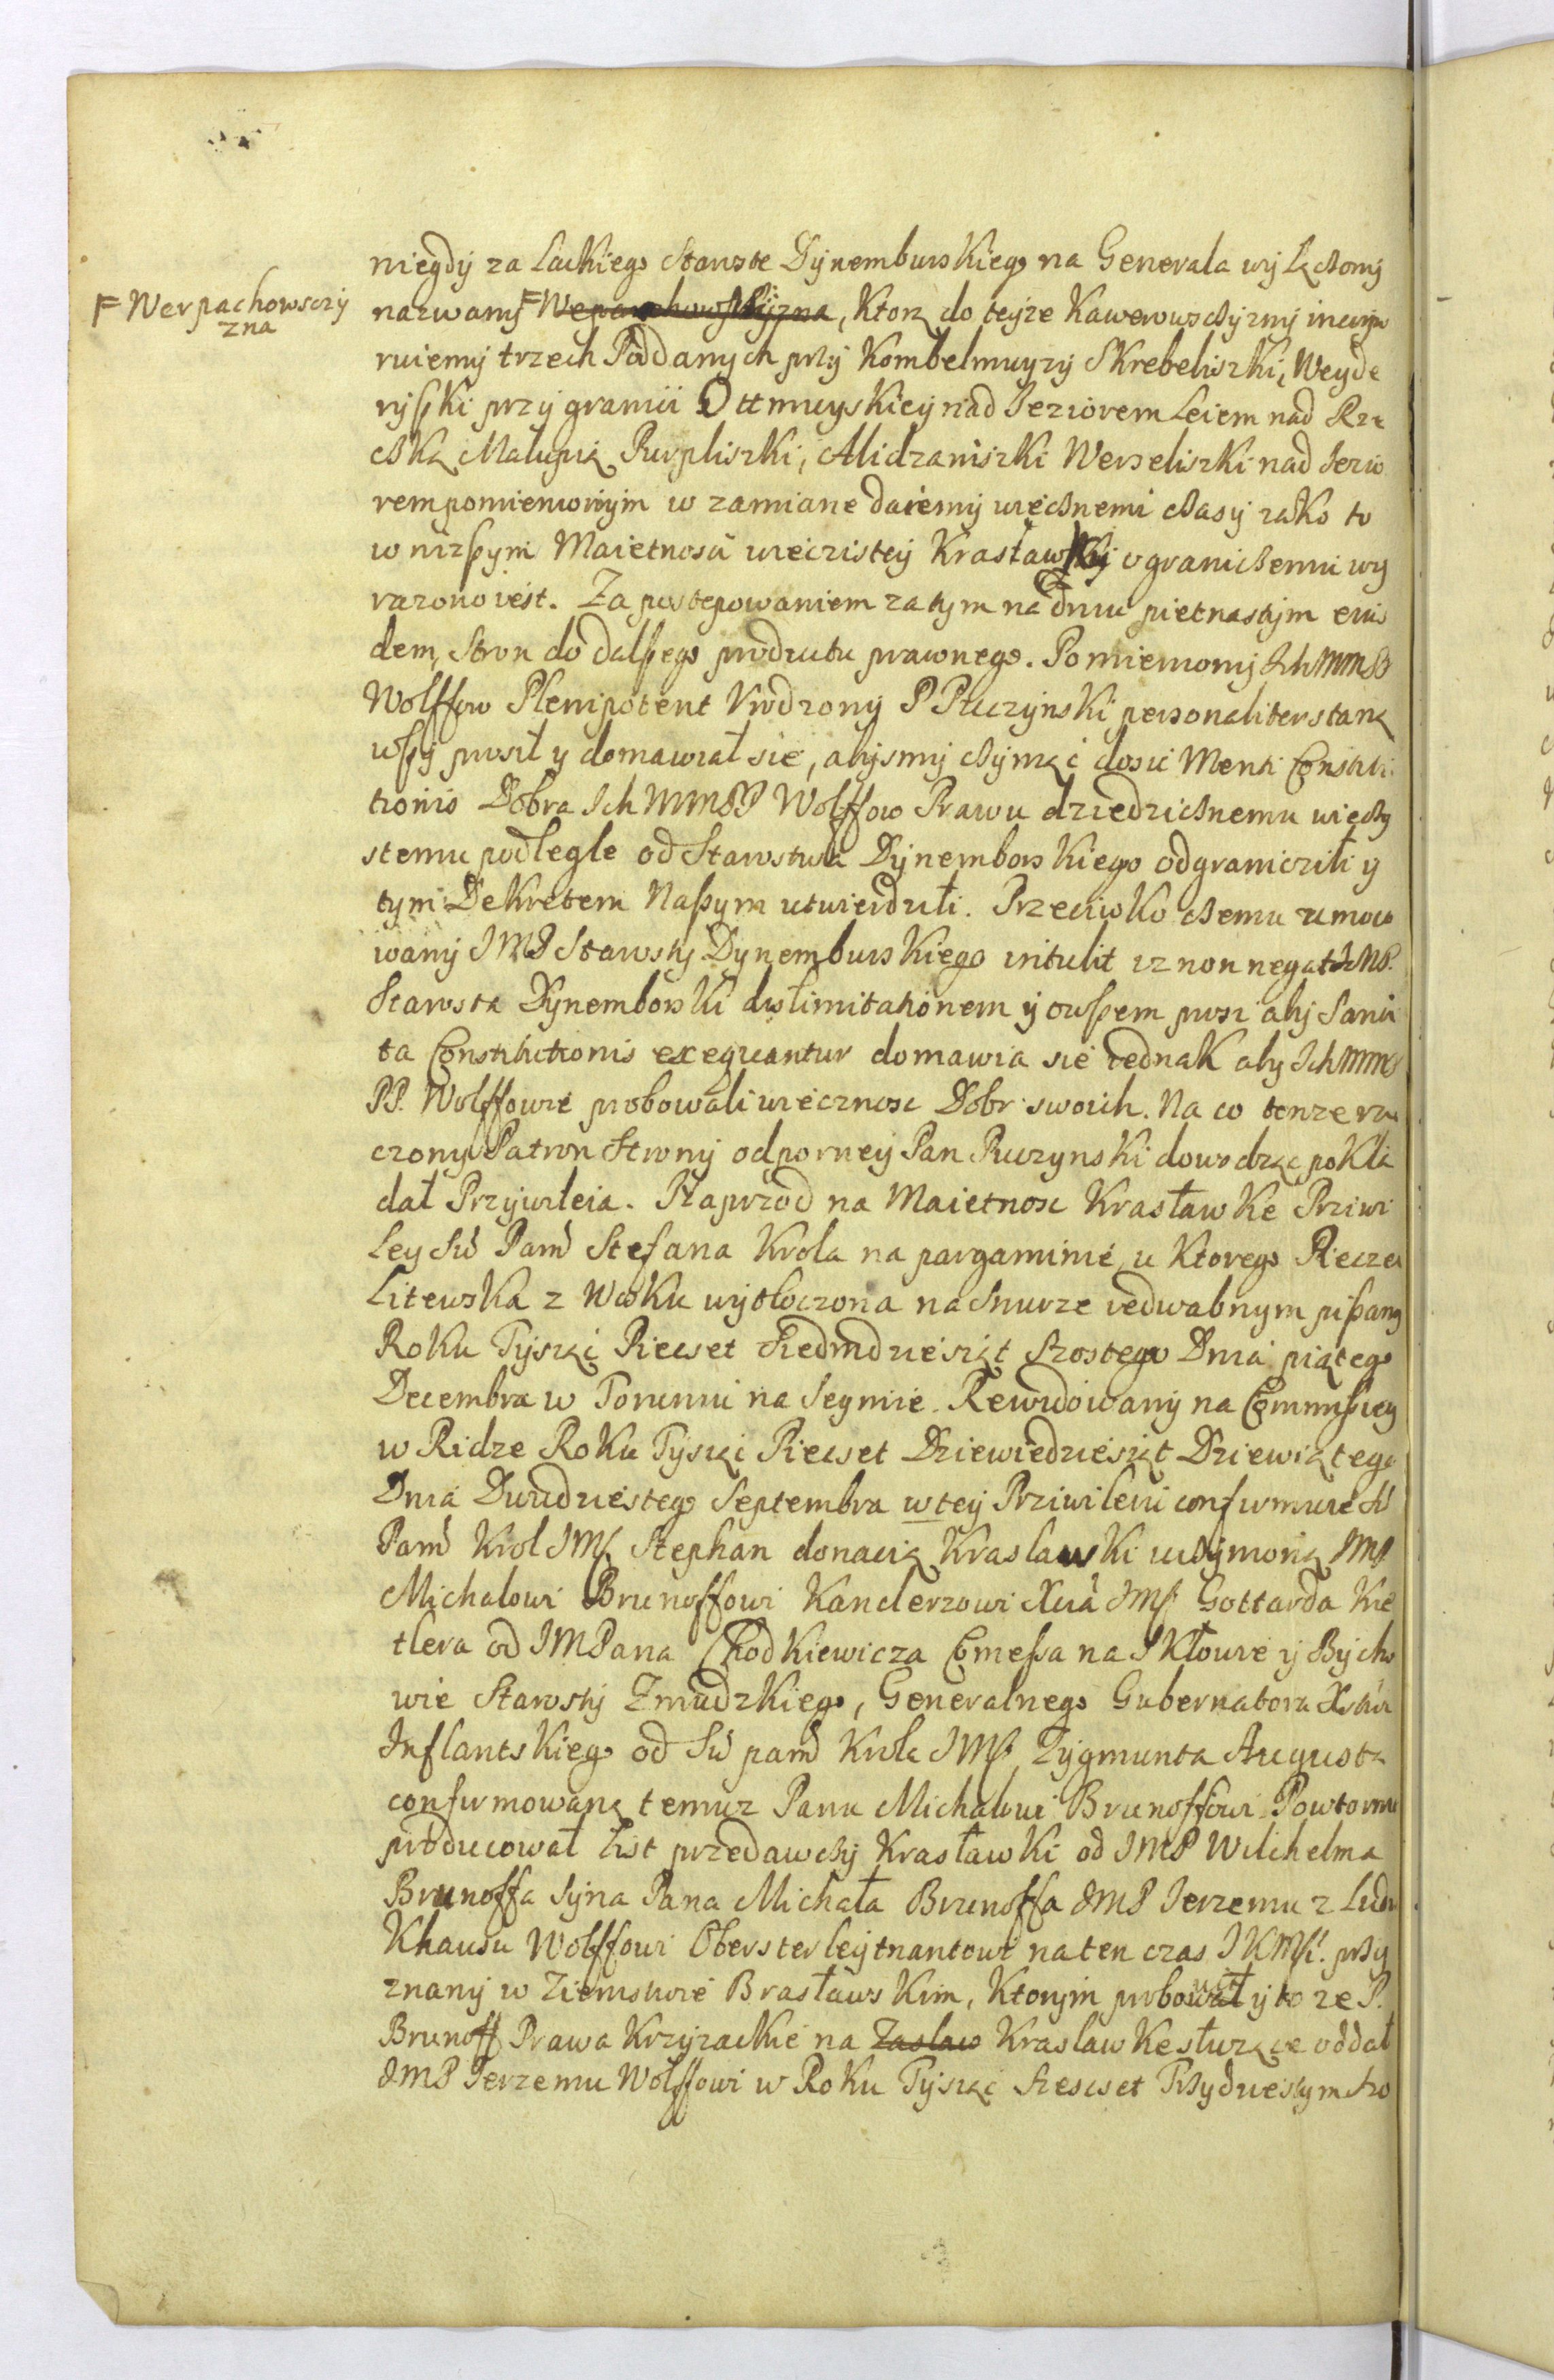 niegdy za Lackiego Staroste Dynemburskiego na Generała wyłączony
F Werpachowsczy
zna
nazwany F Weparchowszczyzna, Ktorą do teyze Kawerowsczyzny incorpo
ruiemy trzech Poddanych przy Kombelmuyzy Skrebeliszki, Weyde
ryszki przy granicii Ottmuyskiey nad Ieziorem Leiem nad Rze
czką Malupią Purpliszki, Midzaniszki Werseliszki nad Iezio
rem pomienionym w zamiane daiemy wiecznemi czasy iako to
w nizszym Maietnosci wieczistey Krasławsky ograniczeniu wy
razono iest. Za postepowaniem zatym na dniu pietnastym eius
dem, Stron do dalszego produktu prawnego. Pomieniony Ich MM PP
Wolffow Plenipotent Urodzony P Pluczynski personaliter stana
wszy prosił y domawiał sie, abysmy czyniąc dosic Menti Constitu
tionis Dobra Ich MM PP Wolffow Prawu dziedzicznemu wieczy
stemu podlegle od Starostwa Dynemborskiego odgraniczili y
tym Dekretem Naszym utwierdzili. Przeciwko czemu umoco
wany IMP Starosty Dynemburskiego intulit iz non negat IMP.
Starosta Dynemborski dislimitationem y owszem prosi aby Sanci
ta Constitutionis exequantur domawia sie iednak aby Ich MM
PP. Wolffowie probowali wiecznosc Dobr swoich. Na co tenze rze
czony Patron Strony odporney Pan Puczynski dowodząc pokła
dał Przywileia. Naprzod na Maietnosc Krasławke Priwi
ley Sw Pamd Stefana Krola na pargaminie, u Ktorego Pieczec
Litewska z Wosku wytłoczona na Snurze iedwabnym pisany
Roku Tysiąc Piecset Siedmdziesiąt Szostego Dnia piątego
Decembra w Toruniu na Seymie. Rewidowany na Commissiey
w Ridze Roku Tysiąc Piecset Dziewiedziesiąt Dziewiątego
Dnia Dwudziestego Septembra w tey Priwileiu confirmuie S
Pamd Krol IMsc Stephan donacią Krasławki uczymoną IMP
Michałowi Brunoffowi Kanclerzowi Xcia IMsc Gottarda Kie
tlera od IMPana Chodkiewicza Comessa na Skłowie y Bycho
wie Starosty Zmudzkiego, Generalnego Gubernatora Xstwa
Inflantskiego od Sw pamd Krola IMsc Zygmunta Augusta
confirmowaną temuz Panu Michałowi Brunoffowi Powtornie
producował List przedawczy Krasławki od IMP Wilchelma
Brunoffa Syna Pana Michała Brunoffa IMP Ierzemu z Ludu
Khausu Wolffowi Obersterleytnantowi na ten czas IKMsci przy
znany w Ziemstwie Brasławskim, Ktorym probował y to ze P.
Brunoff Prawa Krzyzackie na Zaslaw Kraslawke słuzące oddał
IMP Ierzemu Wolffowi w Roku Tysiąc Szescset Trzydziestym Szo